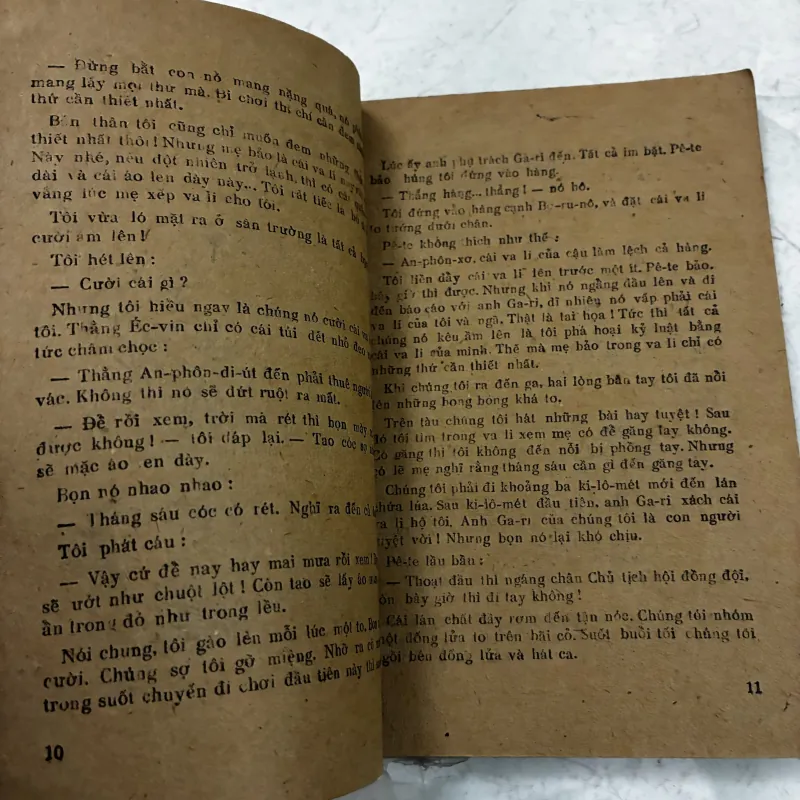 — Đừng bắt con nó mang nặng quá, nó
mang lấy mọi thứ mà. Đi chơi thì chỉ cần đem
thứ cần thiết nhất.
Bản thân tôi cũng chỉ muốn đem những
thiết nhất thôi! Nhưng mẹ bảo là cái va li
Này nhé, nếu đột nhiên trở lạnh, thì có cái
dài và cái áo len dày này... Tôi rất tiếc là bố
vắng lúc mẹ xếp va li cho tôi.
Tôi vừa ló mặt ra ở sân trường là tất cả
cười ầm lên!
Tôi hét lên:
— Cười cái gì?
Nhưng tôi hiểu ngay là chúng nó cười cái
tôi. Thằng Éc-vin chỉ có cái túi dết nhỏ đeo
tức châm chọc:
— Thằng An-phôn-di-út đến phải thuê người
vác. Không thì nó sẽ dứt ruột ra mất.
— Để rồi xem, trời mà rét thì bọn mày
được không! — tôi đáp lại. — Tao cóc sợ
sẽ mặc áo len dày.
Bọn nó nhao nhao:
— Tháng sáu cóc có rét. Nghĩ ra đến cả
Tôi phát cáu:
— Vậy cứ để nay hay mai mưa rồi xem!
sẽ ướt như chuột lột! Còn tao sẽ lấy áo
ẩn trong đó như trong lều.
Nói chung, tôi gào lên mỗi lúc một to.
cười. Chúng sợ tôi gở miệng. Nhỡ ra
trong suốt chuyến đi chơi đầu tiên này thì
10
Lúc ấy anh phụ trách Ga-ri đến. Tất cả im bặt. Pê-te
bảo chúng tôi đứng vào hàng.
— Thẳng hàng... thẳng! — nó hô.
Tôi đứng vào hàng cạnh Bơ-ru-nô, và đặt cái va li
to tướng dưới chân.
Pê-te không thích như thế:
— An-phôn-xơ, cái va li của cậu làm lệch cả hàng.
Tôi liền đẩy cái va li lên trước một ít. Pê-te bảo,
bây giờ thì được. Nhưng khi nó ngẩng đầu lên và đi
đến báo cáo với anh Ga-ri, dĩ nhiên nó vấp phải cái
va li của tôi và ngã. Thật là tai họa! Tức thì tất cả
chúng nó kêu ầm lên là tôi phá hoại kỷ luật bằng
cái va li của mình. Thế mà mẹ bảo trong va li chỉ có
những thứ cần thiết nhất.
Khi chúng tôi ra đến ga, hai lòng bàn tay tôi đã nổi
lên những bong bóng khá to.
Trên tàu chúng tôi hát những bài hay tuyệt! Sau
đó tôi tìm trong va li xem mẹ có để găng tay không.
Có găng thì tôi không đến nỗi bị phồng tay. Nhưng
có lẽ mẹ nghĩ rằng tháng sáu cần gì đến găng tay.
Chúng tôi phải đi khoảng ba ki-lô-mét mới đến lán
chứa lúa. Sau ki-lô-mét đầu tiên, anh Ga-ri xách cái
va li hộ tôi. Anh Ga-ri của chúng tôi là con người
tuyệt vời! Nhưng bọn nó lại khó chịu.
Pê-te lầu bầu:
— Thoạt đầu thì ngáng chân Chủ tịch hội đồng đội,
còn bây giờ thì đi tay không!
Cái lán chất đầy rơm đến tận nóc. Chúng tôi nhóm
một đống lửa to trên bãi cỏ. Suốt buổi tối chúng tôi
ngồi bên đống lửa và hát ca.
11